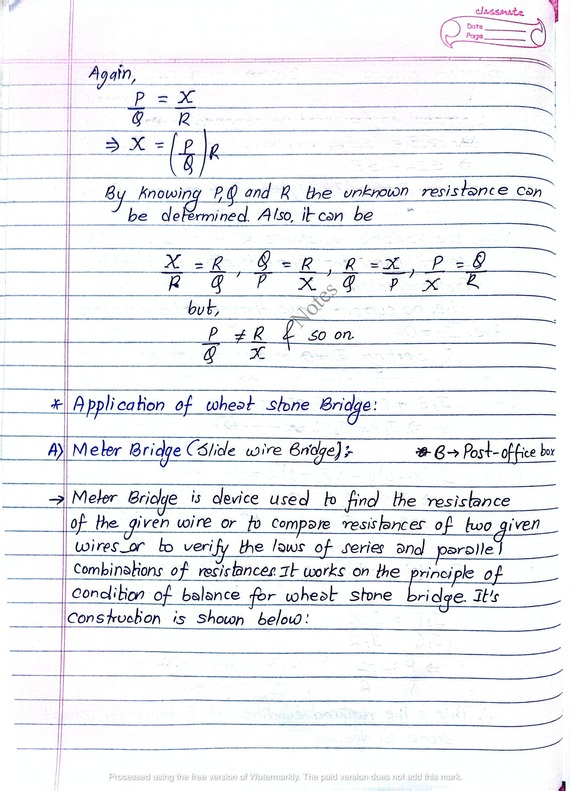 classmate
Date
Page
Again,
P/Q = X/R
⇒ X = (P/Q)R
By knowing P,Q and R the unknown resistance can
be determined. Also, it can be
X/R = R/Q, Q/P = R/X, R/Q = X/P, P/X = Q/R
but,
Notes
P/Q ≠ R/X & so on.
* Application of wheat stone Bridge:
A) Meter Bridge (Slide wire Bridge):- * B→ Post-office box
→ Meter Bridge is device used to find the resistance
of the given wire or to compare resistances of two given
wires or to verify the laws of series and parallel
combinations of resistances. It works on the principle of
condition of balance for wheat stone bridge. It's
construction is shown below:
Processed using the free version of Watermarkly. The paid version does not add this mark.